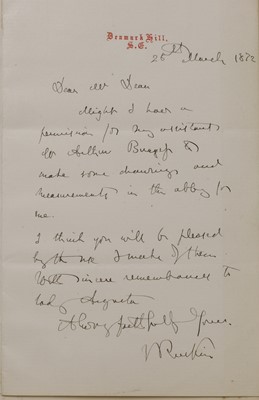 Denmark Hill,
S.E.
26th March 1872
Dear Mr Dean
Might I have
permission for my assistant
Mr Arthur Burgess to
make some drawings and
measurements in the abbey for
me.
I think you will be pleased
by the use I make of them.
With sincere remembrances to
Lady Augusta
faithfully Yours.
J Ruskin